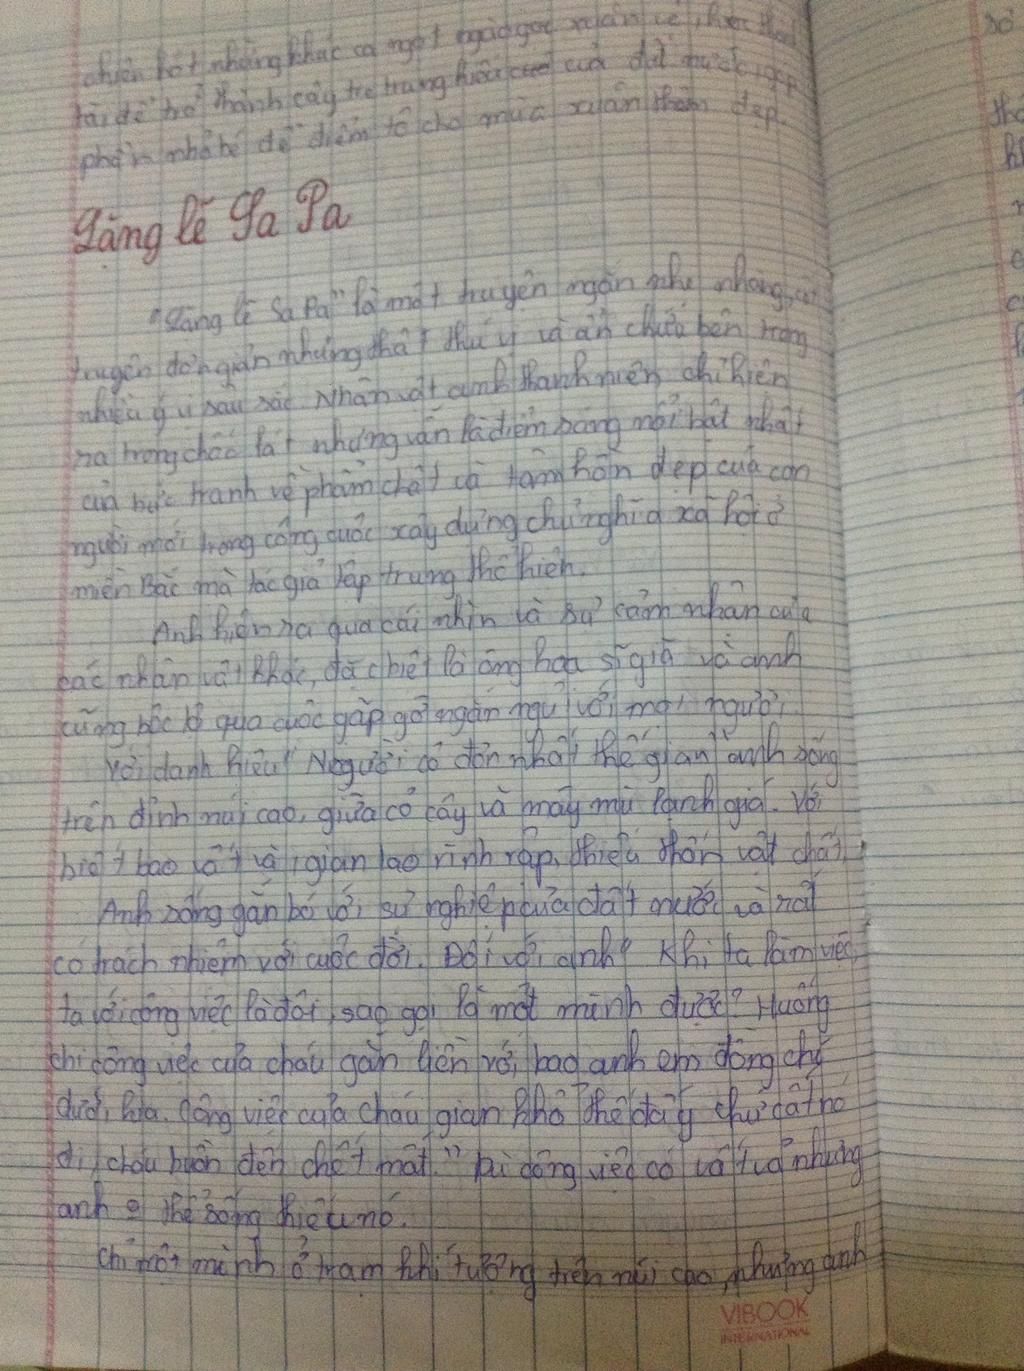 chiền hót những khúc ca ngọt ngào gọi xuân về,
tài để trở thành cây tre trung hiếu của đất nước, góp
phần nhỏ bé để điểm tô cho mùa xuân thêm đẹp.
Lặng lẽ Sa Pa
"Lặng lẽ Sa Pa" là một truyện ngắn nhẹ nhàng, cốt
truyện đơn giản nhưng thật thú vị và ẩn chứa bên trong
nhiều ý vị sâu sắc Nhân vật anh thanh niên chỉ hiện
ra trong chốc lát nhưng vẫn là điểm sáng nổi bật nhất
của bức tranh về phẩm chất và tâm hồn đẹp của con
người mới trong công cuộc xây dựng chủ nghĩa xã hội ở
miền Bắc mà tác giả tập trung thể hiện.
Anh hiện ra qua cái nhìn và sự cảm nhận của
các nhân vật khác, đặc biệt là ông họa sĩ già và anh
cũng bộc lộ qua cuộc gặp gỡ ngắn ngủi với mọi người.
Với danh hiệu "Người cô đơn nhất thế gian" anh sống
trên đỉnh núi cao, giữa cỏ cây và mây mù lạnh giá. Với
biết bao vất vả, gian lao rình rập, thiếu thốn vật chất.
Anh sống gắn bó với sự nghiệp của đất nước và rất
có trách nhiệm với cuộc đời. Đối với anh " Khi ta làm việc,
ta với công việc là đôi, sao gọi là một mình được? Huống
chi công việc của cháu gắn liền với bao anh em đồng chí
dưới kia. Công việc của cháu gian khổ thế đấy chứ cất nó
đi, cháu buồn đến chết mất." Dù công việc có vất vả nhưng
anh o thể sống thiếu nó.
Chỉ một mình ở trạm khí tượng trên núi cao, nhưng anh
VIBOOK
INTERNATIONAL